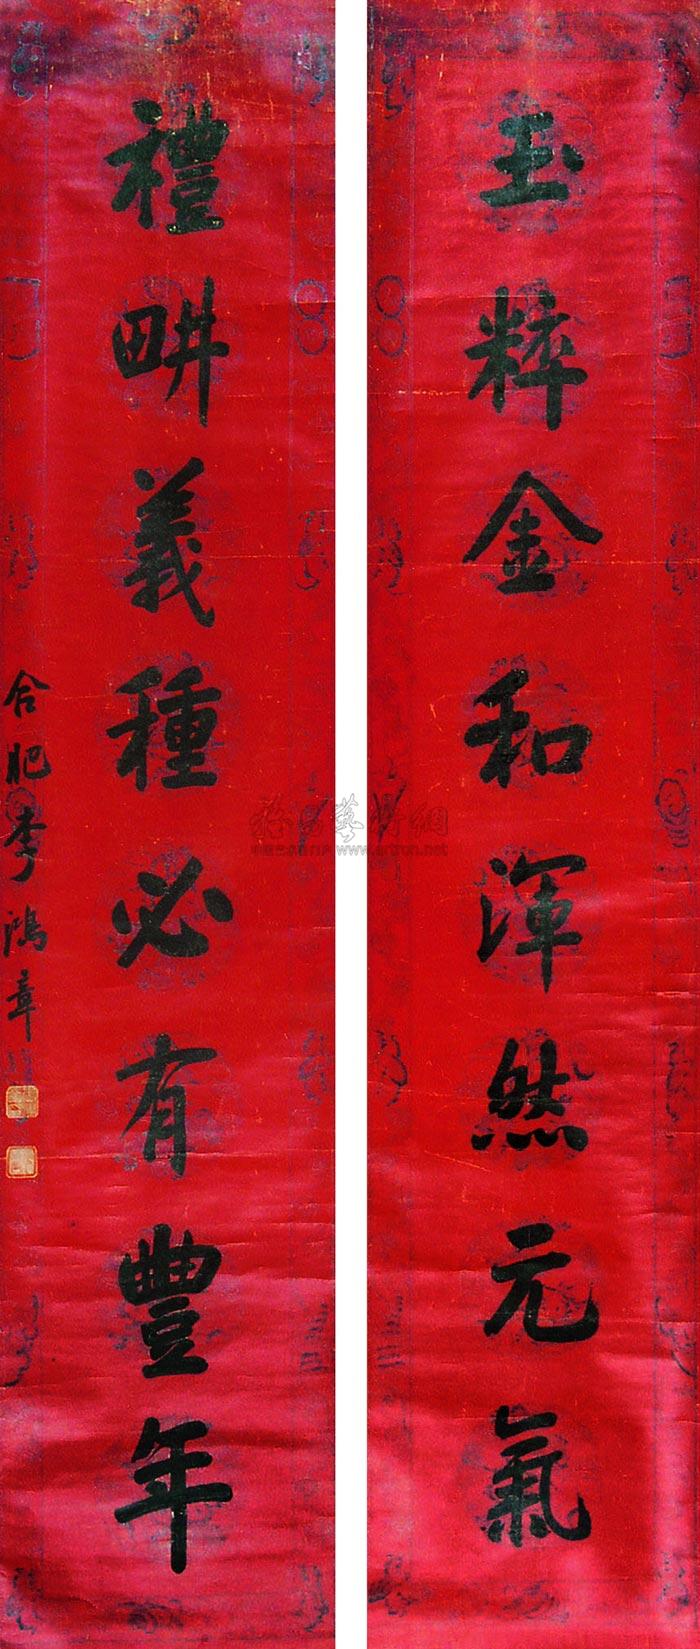 玉粹金和渾然元氣
禮畊義種必有豐年
合肥李鴻章
www.artron.net